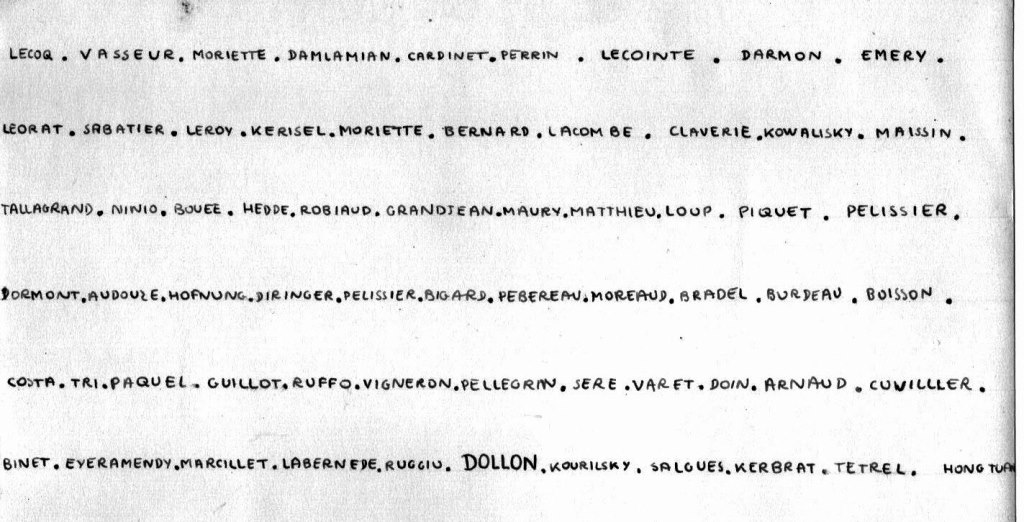 LECOQ . VASSEUR. MORIETTE . DAMLAMIAN. CARDINET. PERRIN . LECOINTE . DARMON . EMERY .
LEORAT . SABATIER . LEROY . KERISEL. MORIETTE . BERNARD . LACOMBE . CLAVERIE . KOWALISKY . MAISSIN .
TALLAGRAND. NINIO . BOUEE . HEDDE. ROBIAUD. GRANDJEAN. MAURY. MATTHIEU. LOUP . PIQUET . PELISSIER .
DORMONT. AUDOUZE. HOFNUNG. DIRINGER. PELISSIER. BIGARD. PEBEREAU. MOREAUD. BRADEL . BURDEAU . BOISSON .
COSTA. TRI. PAQUEL . GUILLOT. RUFFO. VIGNERON. PELLEGRIN. SERE . VARET. DOIN. ARNAUD . CUVILLLER .
BINET. EYERAMENDY. MARCILLET. LABERNEDE. RUGGIU . DOLLON. KOURILSKY . SALGUES. KERBRAT. TETREL . HONG TUAN